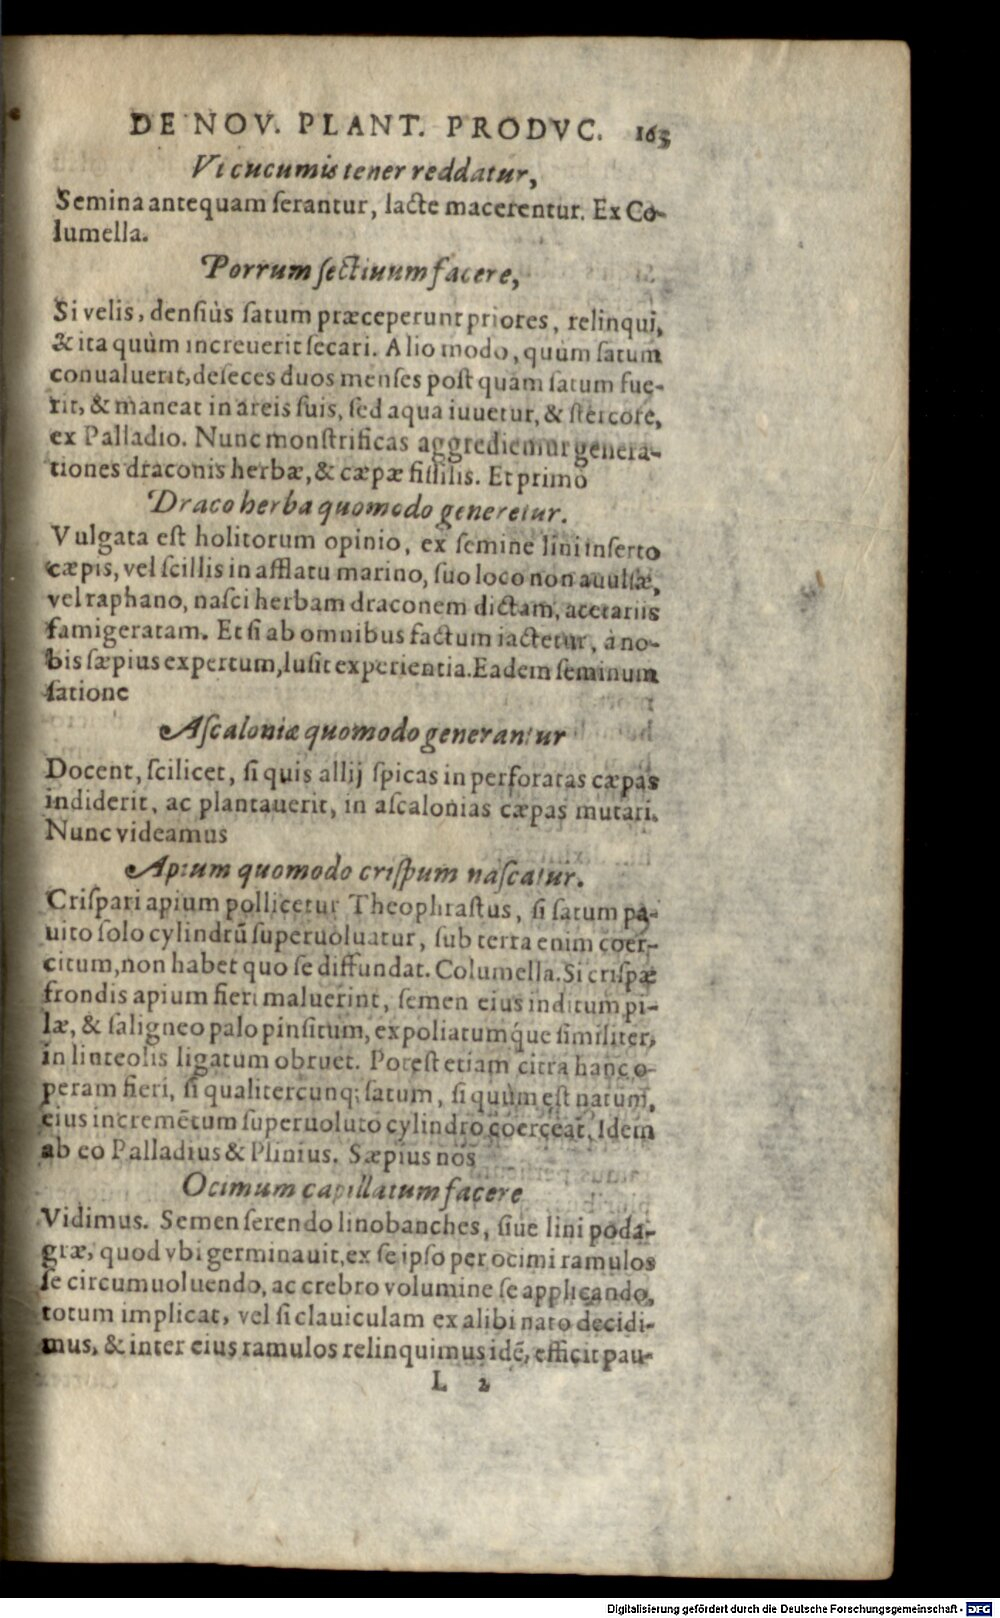 DE NOV. PLANT. PRODVC. 163
Vt cucumis tener reddatur,
Semina antequam serantur, lacte macerentur. Ex Co-
lumella.
Porrum sectiuum facere,
Si velis, densiùs satum præceperunt priores, relinqui,
& ita quùm increuerit secari. Alio modo, quùm satum
conualuerit, deseces duos menses post quàm satum fue-
rit, & maneat in areis suis, sed aqua iuuetur, & stercore,
ex Palladio. Nunc monstrificas aggrediemur genera-
tiones draconis herbæ, & cæpæ fissilis. Et primò
Draco herba quomodo generetur.
Vulgata est holitorum opinio, ex semine lini inserto
cæpis, vel scillis in afflatu marino, suo loco non auulsæ,
vel raphano, nasci herbam draconem dictam, acetariis
famigeratam. Et si ab omnibus factum iactetur, à no-
bis sæpius expertum, lusit experientia. Eadem seminum
satione
Ascaloniæ quomodo generantur
Docent, scilicet, si quis allij spicas in perforatas cæpas
indiderit, ac plantauerit, in ascalonias cæpas mutari.
Nunc videamus
Apium quomodo crispum nascatur.
Crispari apium pollicetur Theophrastus, si satum pa-
uito solo cylindrū superuoluatur, sub terra enim coer-
citum, non habet quo se diffundat. Columella. Si crispæ
frondis apium fieri maluerint, semen eius inditum pi-
læ, & saligneo palo pinsitum, expoliatumq́ue similiter,
in linteolis ligatum obruet. Potest etiam citra hanc o-
peram fieri, si qualitercunq; satum, si quùm est natum,
eius incremẽtum superuoluto cylindro coerceat. Idem
ab eo Palladius & Plinius. Sæpius nos
Ocimum capillatum facere
Vidimus. Semen serendo linobanches, siue lini poda-
græ, quod vbi germinauit, ex se ipso per ocimi ramulos
se circumuoluendo, ac crebro volumine se applicando,
totum implicat, vel si clauiculam ex alibi nato decidi-
mus, & inter eius ramulos relinquimus idẽ, efficit pau-
L 2
Digitalisierung gefördert durch die Deutsche Forschungsgemeinschaft - DFG